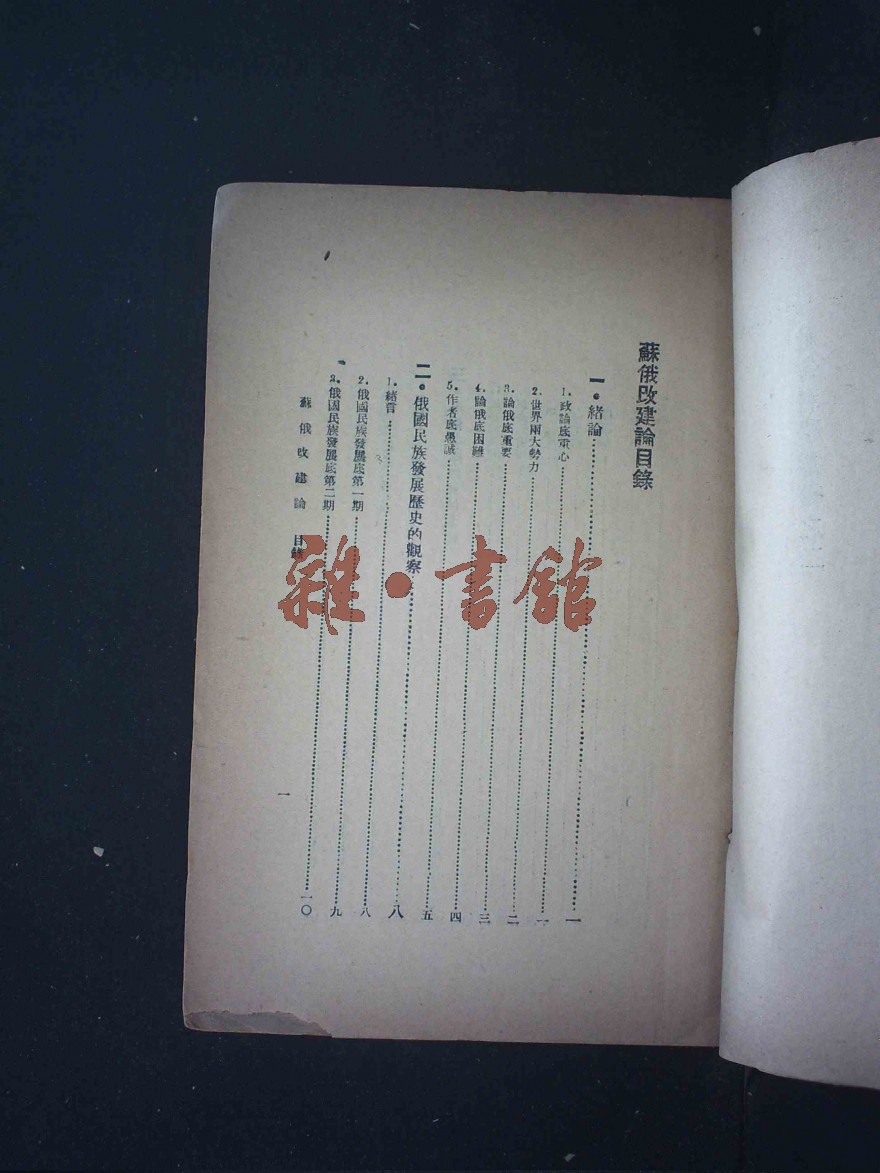 蘇俄改建論目錄
一．緒論……一
1．政論底重心……一
2．世界兩大勢力……二
3．論俄底重要……三
4．論俄底困難……四
5．作者底愚誠……五
二．俄國民族發展歷史的觀察……八
1．緒言……八
2．俄國民族發展底第一期……九
3．俄國民族發展底第二期……一〇
蘇俄改建論 目錄 一
雜•書館